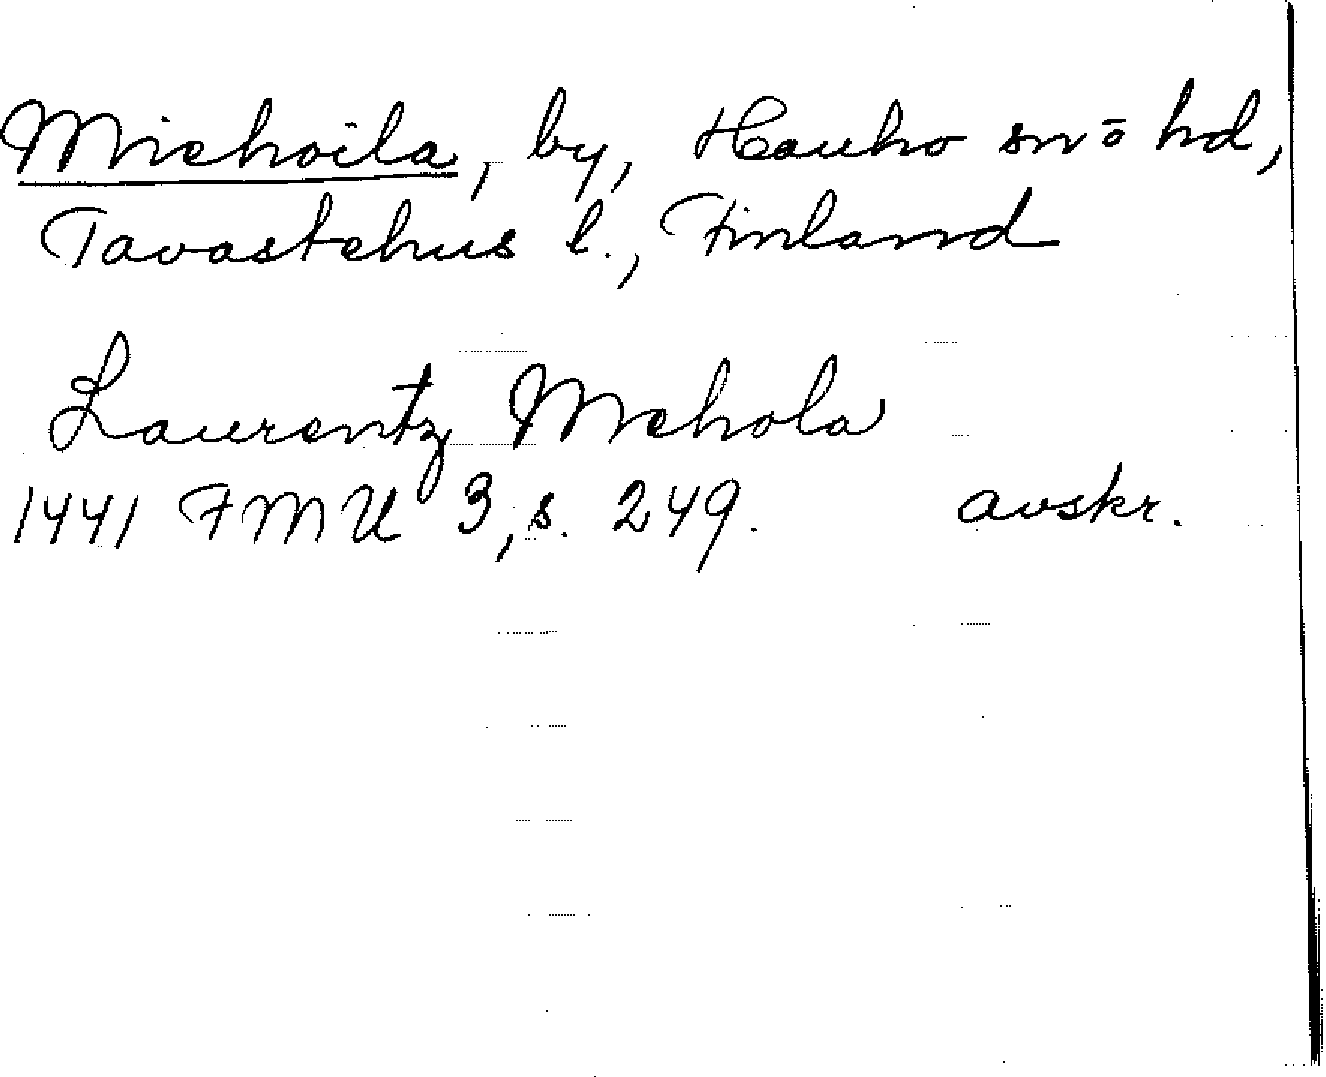 Miehoila, by, Hauho sn o hd,
Tavastehus l., Finland
Laurentz Mehola
1441 FMU 3, s. 249. avskr.